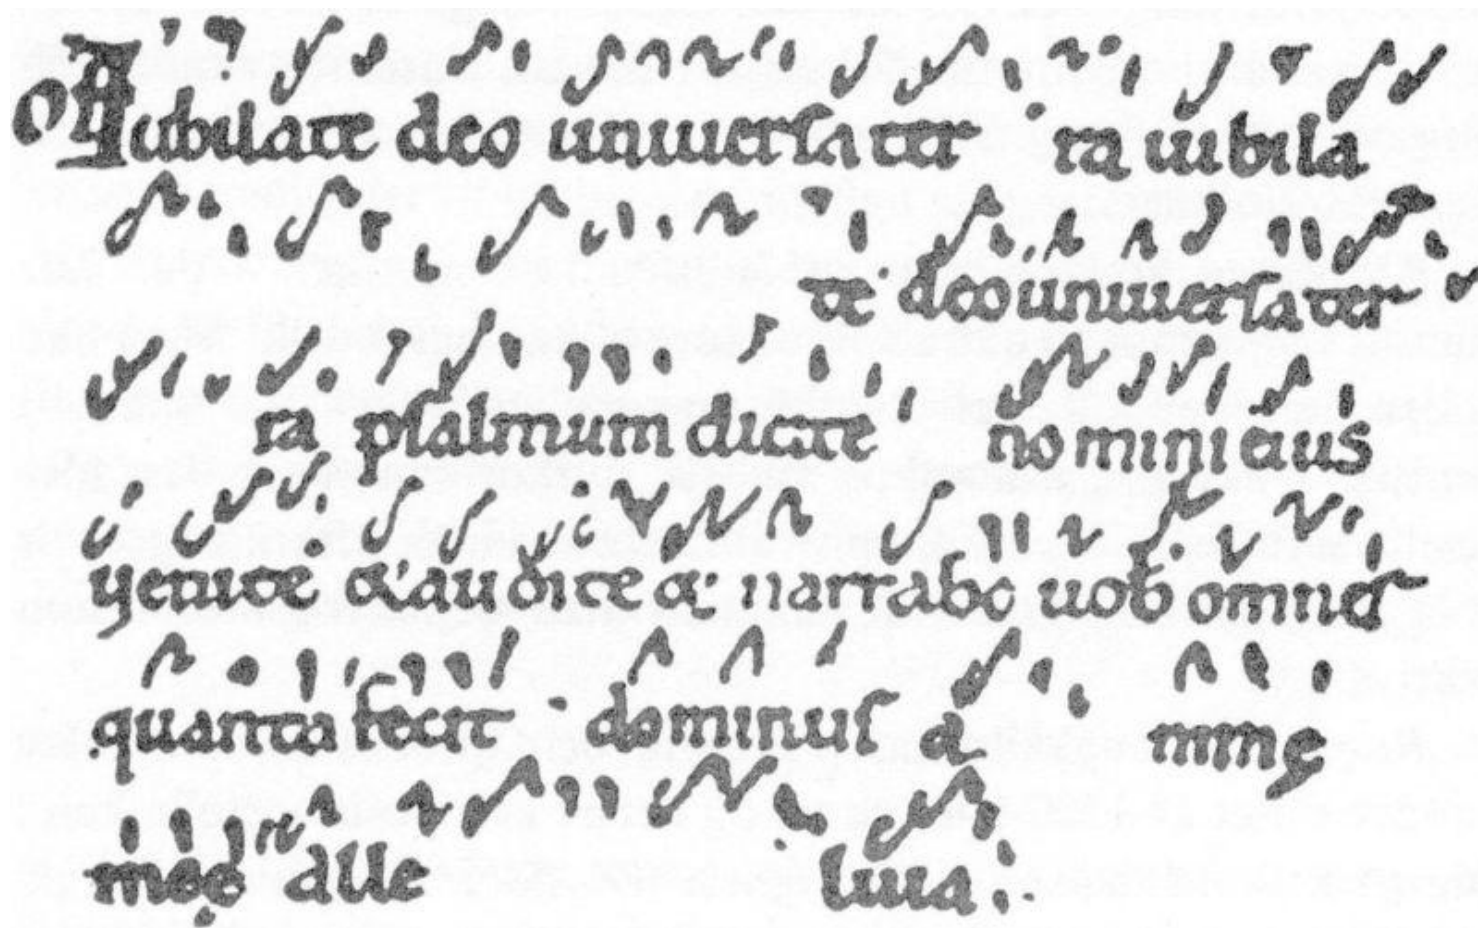 Off Iubilate deo uniuersa ter ra iubila
te deo uniuersa ter
ra psalmum dicite nomini eius
uenite & audite & narrabo uob omnes
quanta fecit dominus a nime
meę alle luia.